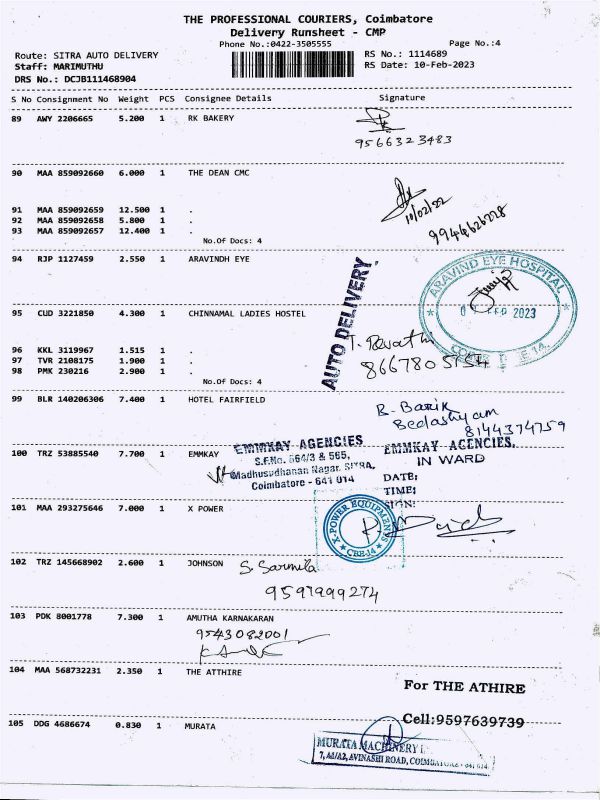 THE PROFESSIONAL COURIERS, Coimbatore
Delivery Runsheet - CMP
Phone No.:0422-3505555
Page No.:4
Route: SITRA AUTO DELIVERY
RS No.: 1114689
Staff: MARIMUTHU
RS Date: 10-Feb-2023
DRS No.: DCJB111468904
S No Consignment No Weight PCS Consignee Details Signature
89 AWY 2206665 5.200 1 RK BAKERY
9566323483
90 MAA 859092660 6.000 1 THE DEAN CMC
91 MAA 859092659 12.500 1 .
10/02/22
92 MAA 859092658 5.800 1 .
93 MAA 859092657 12.400 1 .
9944626728
No.Of Docs: 4
94 RJP 1127459 2.550 1 ARAVINDH EYE
AUTO DELIVERY
ARAVIND EYE HOSPITAL
FEB 2023
95 CUD 3221850 4.300 1 CHINNAMAL LADIES HOSTEL
T. Revathi
96 KKL 3119967 1.515 1 .
97 TVR 2108175 1.900 1 .
98 PMK 230216 2.900 1 .
No.Of Docs: 4
99 BLR 140206306 7.400 1 HOTEL FAIRFIELD
B. Barik
Bedashyam
8144374759
100 TRZ 53885540 7.700 1 EMMKAY
EMMKAY AGENCIES
S.F.No. 564/3 & 565,
Madhusudhanan Nagar, SITRA,
Coimbatore - 641 014
EMMKAY AGENCIES,
IN WARD
DATE:
TIME:
SIGN:
101 MAA 293275646 7.000 1 X POWER
X-POWER EQUIPMENTS
CBE-14
102 TRZ 145668902 2.600 1 JOHNSON
S. Sarmila
9597999274
103 PDK 8001778 7.300 1 AMUTHA KARNAKARAN
9543082001
104 MAA 568732231 2.350 1 THE ATTHIRE
For THE ATHIRE
Cell:9597639739
105 DDG 4686674 0.830 1 MURATA
MURATA MACHINERY
7, A1/A2, AVINASHI ROAD, COIMBATORE - 641 014.